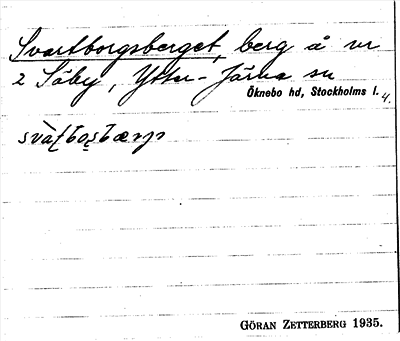 Svartborgsberget, berg å nr
2 Säby, Ytter-Järna sn
Öknebo hd, Stockholms l.
4.
GÖRAN ZETTERBERG 1935.